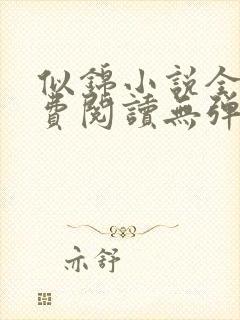 似錦小說全
費閱讀無彈
亦舒